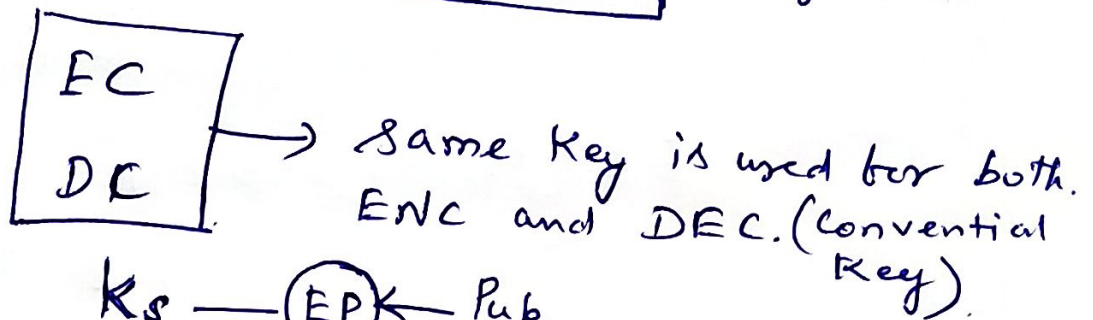 EC
DC
same key is used for both.
ENC and DEC. (Convential
Key).
Ks EP Pub